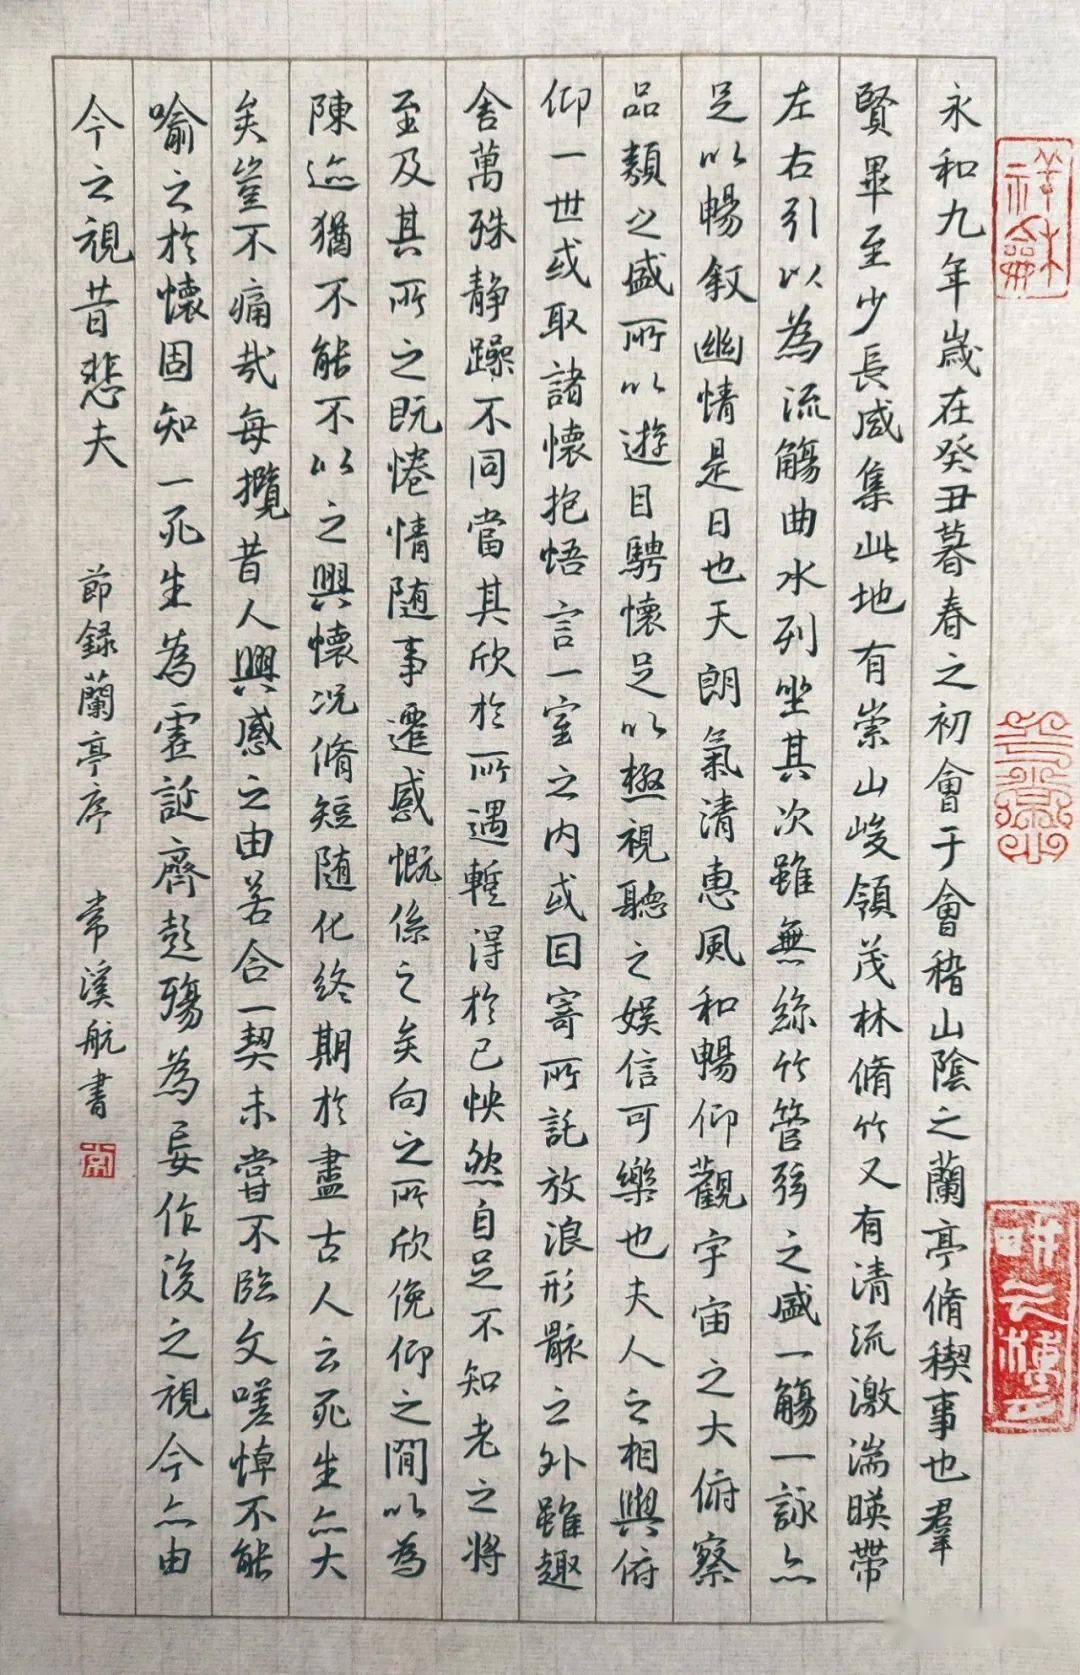 永和九年歲在癸丑暮春之初會于會稽山陰之蘭亭脩稧事也羣
賢畢至少長咸集此地有崇山峻領茂林脩竹又有清流激湍暎帶
左右引以為流觴曲水列坐其次雖無絲竹管弦之盛一觴一詠亦
足以暢敘幽情是日也天朗氣清惠風和暢仰觀宇宙之大俯察
品類之盛所以遊目騁懷足以極視聽之娛信可樂也夫人之相與俯
仰一世或取諸懷抱悟言一室之內或因寄所託放浪形骸之外雖趣
舍萬殊静躁不同當其欣於所遇蹔得於己怏然自足不知老之將
至及其所之既惓情随事遷感慨係之矣向之所欣俛仰之閒以為
陳迹猶不能不以之興懷況脩短随化終期於盡古人云死生亦大
矣豈不痛哉每攬昔人興感之由若合一契未嘗不臨文嗟悼不能
喻之於懷固知一死生為虛誕齊彭殤為妄作後之視今亦由
今之視昔悲夫 節録蘭亭序 常溪航書